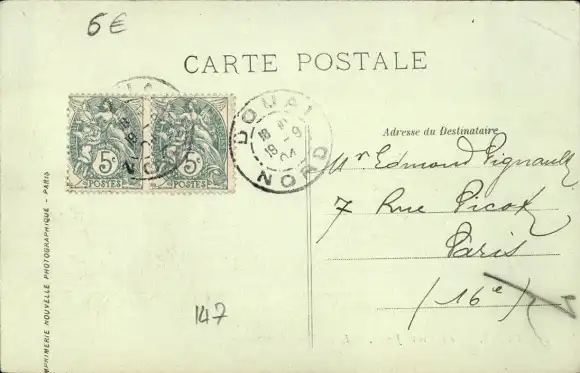 6€
CARTE POSTALE
DOUAI
18
19
04
NORD
5c
POSTES
5c
POSTES
Adresse du Destinataire
Mr Edmond Vignault
7 Rue Picot
Paris
(16e)
147
IMPRIMERIE NOUVELLE PHOTOGRAPHIQUE - PARIS